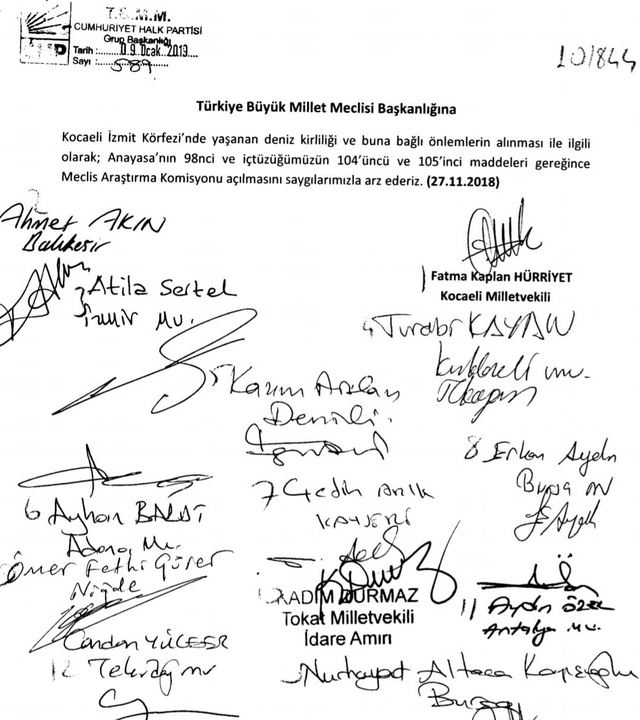 T.B.M.M.
CUMHURİYET HALK PARTİSİ
Grup Başkanlığı
Tarih :.....0.9.Ocak..2019....
Sayı :......589..........
10/844
Türkiye Büyük Millet Meclisi Başkanlığına
Kocaeli İzmit Körfezi’nde yaşanan deniz kirliliği ve buna bağlı önlemlerin alınması ile ilgili
olarak; Anayasa’nın 98nci ve içtüzüğümüzün 104’üncü ve 105’inci maddeleri gereğince
Meclis Araştırma Komisyonu açılmasını saygılarımızla arz ederiz. (27.11.2018)
Ahmet AKIN
Balıkesir
Fatma Kaplan HÜRRİYET
Kocaeli Milletvekili
3 Atila Sertel
İzmir Mv.
4 Turabi KAYAN
Kırklareli mv.
5 Kazım Arslan
Denizli.
6 Ayhan BARUT
Adana Mv.
7 Çetin Arık
KAYSERİ
8 Erkan Aydın
Bursa mv
Ömer Fethi Gürer
Niğde
KADİM DURMAZ
Tokat Milletvekili
İdare Amiri
11 Aydın ÖZER
Antalya mv.
Candan YÜCEER
12 Tekirdağ mv
Nurhayat Altaca Kayışoğlu
Bursa